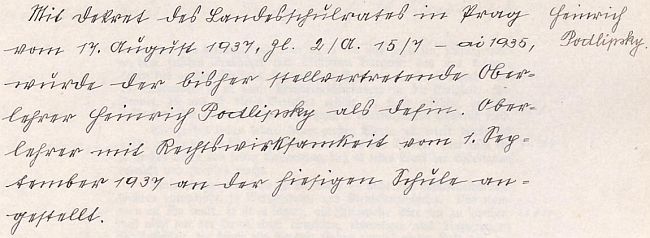 Mit Dekret des Landesschulrates in Prag
vom 17. August 1937, Zl. 2/A. 15/7 – ai 1935,
wurde der bisher stellvertretende Ober-
lehrer Heinrich Podlipsky als defin. Ober-
lehrer mit Rechtswirksamkeit vom 1. Sep-
tember 1937 an der hiesigen Schule an-
gestellt.
Heinrich
Podlipsky.